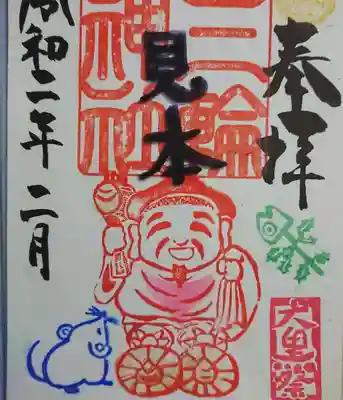 奉拝
大黒祭
三輪
神社
見本
令和二年二月